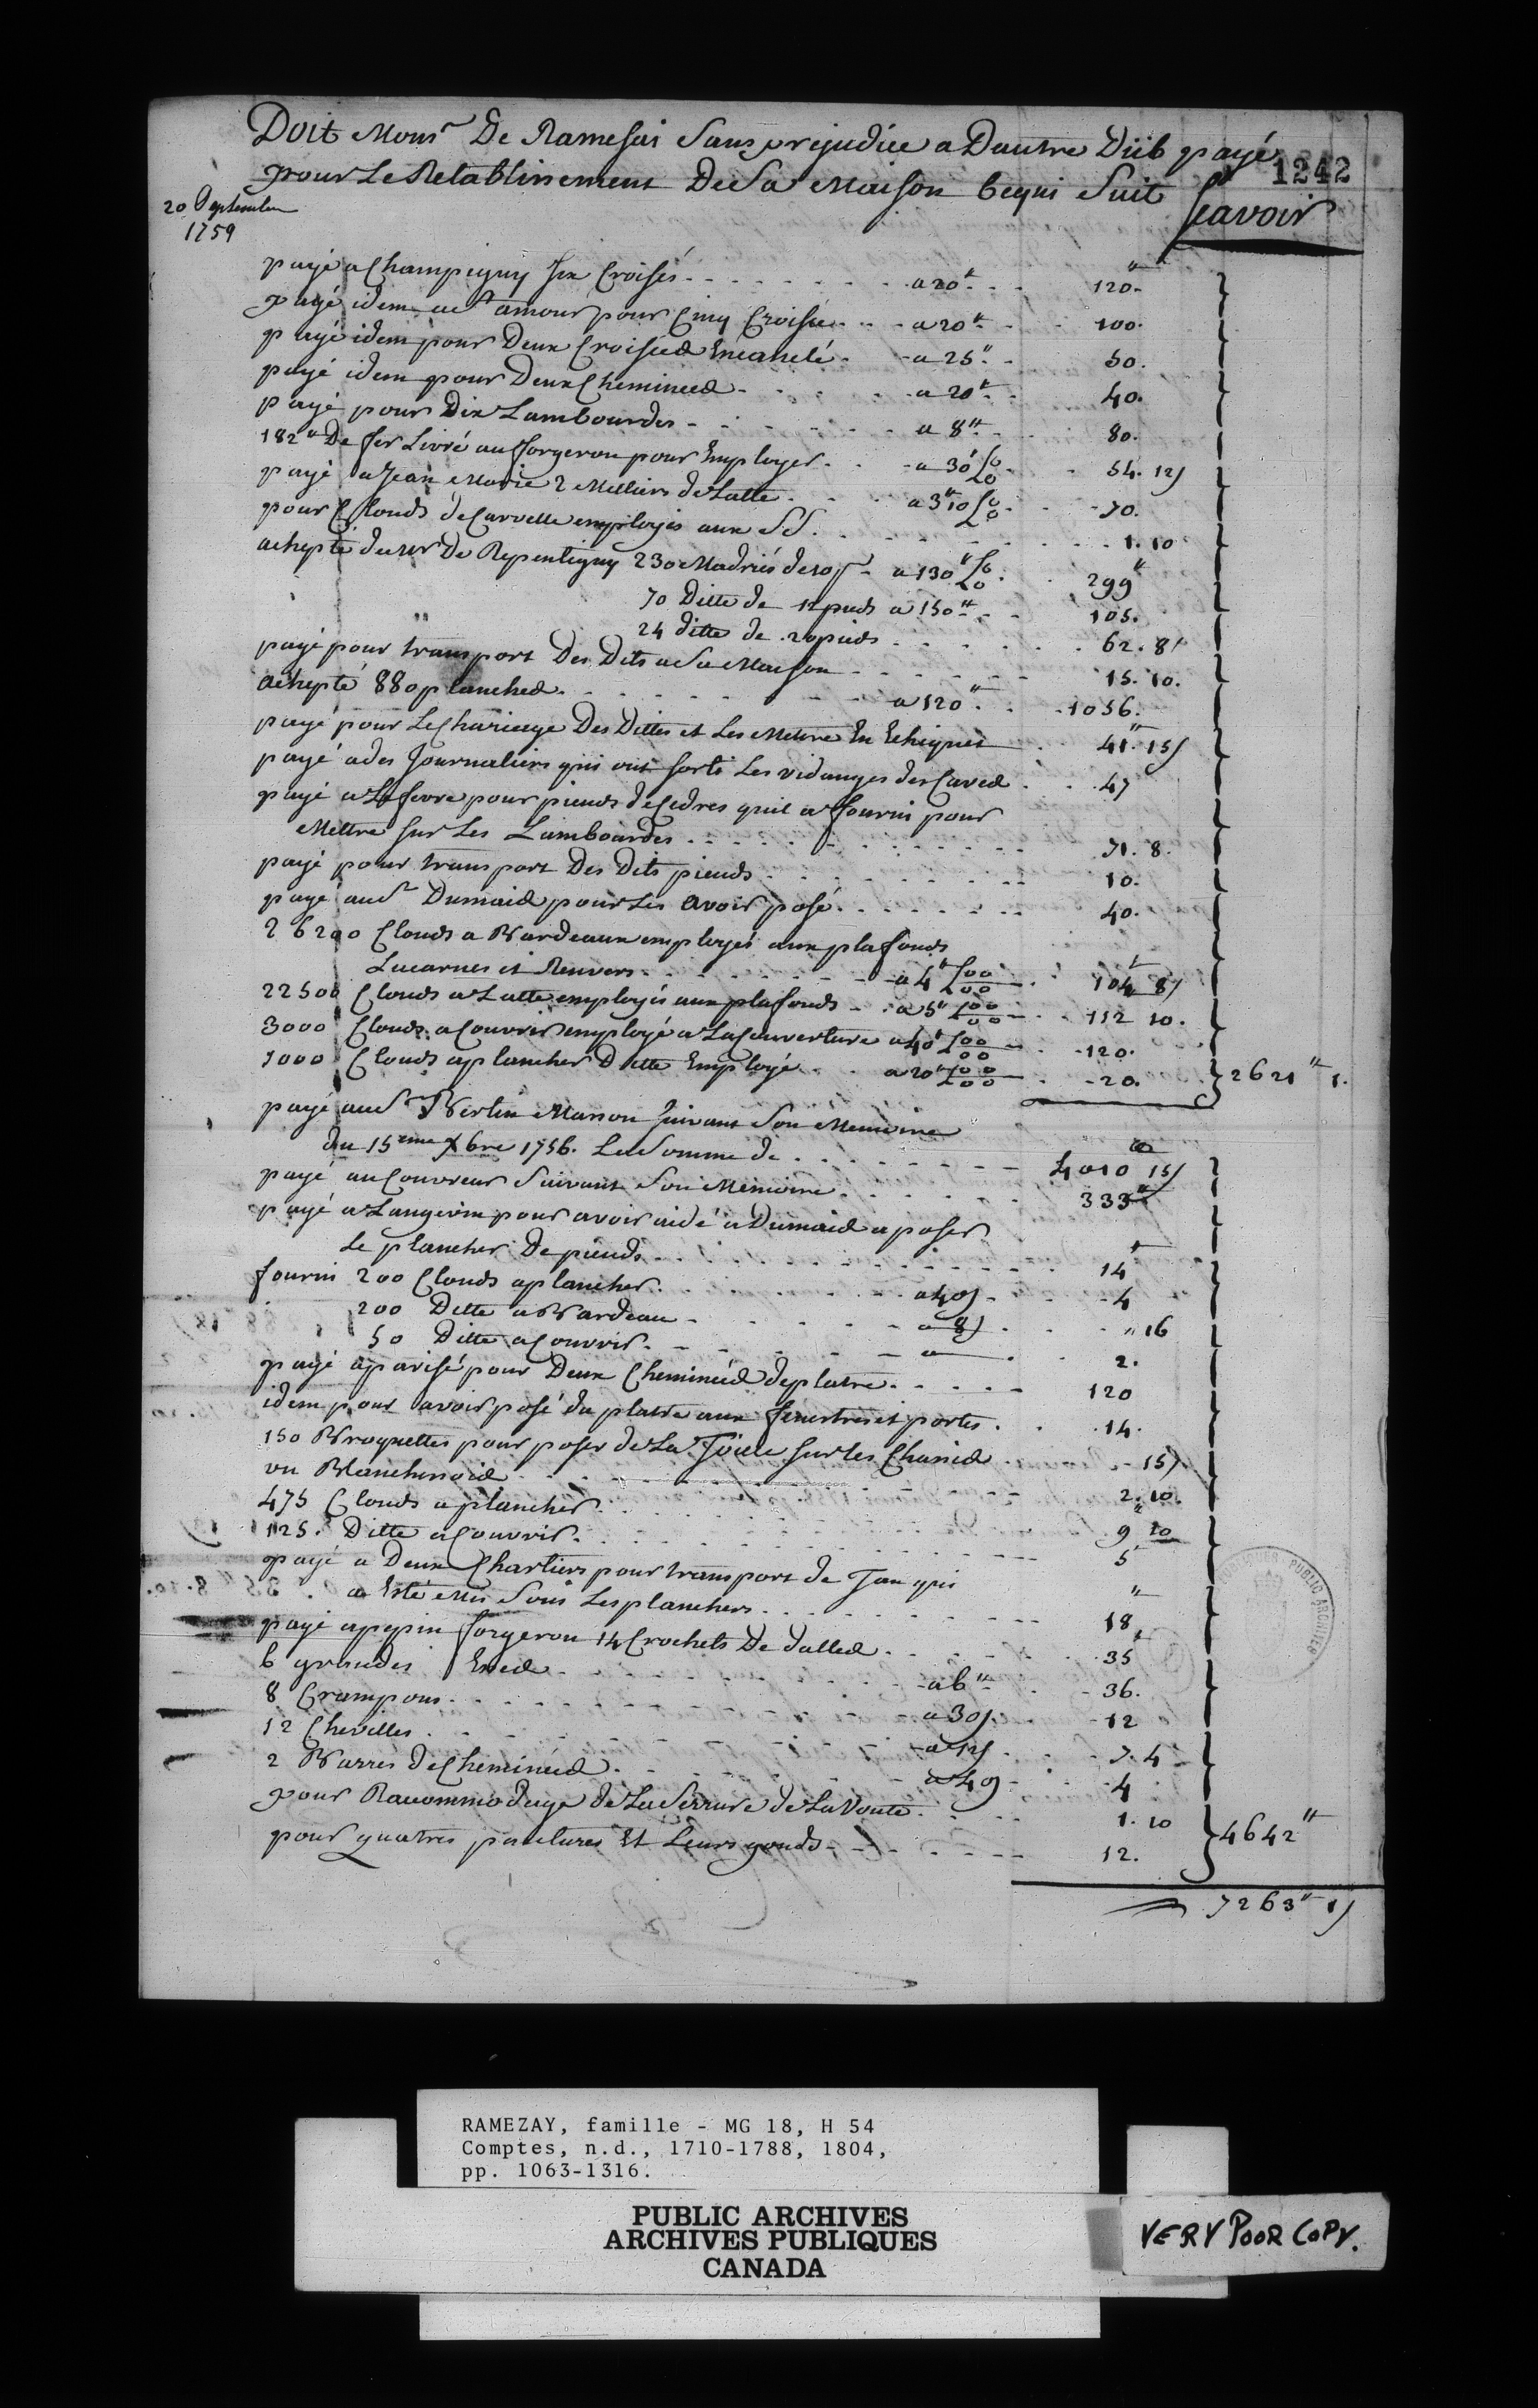 Doit Mons.r De Ramesai Sans prejudice a Dautre Dûb payé
1242
pour Le Retablissement De Sa Maison Cequi Suit
Scavoir
20 Septembre
1759
payé a Champigny Six Croisés - - - a 20" - - 120.
payé idem au Sr amour pour Cinq Croisée - - a 20" - - 100.
payé idem pour Deux Croisées Encanelé - - a 25" - 50.
payé idem pour Deux Cheminees - - a 20" - 40.
payé pour Dix Lambourdes - - - a 8" - - 80.
182" De fer Livré au forgeron pour Employer - - a 30 Lo/o - - 54. 12s
payé a Jean Marie 2 Milliers de Latte - - a 3" 10 Lo/o - - 70.
pour Clouds de Carvelle employés aux Sd. - - - 1. 10
achepté du sr De Repentigny 230 Madriés de 10 p. - a 130" Lo/o - 299"
70 Ditte de 12 pieds a 150" - - 105.
24 ditte de 20 pieds - - - 62. 8s
payé pour transport Des Dits a Sa Maison - - - 15. 10.
achepté 880 planches - - - a 120" - - 1056.
payé pour Le Chariage Des Dittes et Les Mettre En Echiquet - 41" 15s
payé a des Journaliers qui ont sorti Les vidanges des Caves - - 47
payé a Lefevre pour pieuds de Cedres quil a fourni pour
Mettre sur Les Lambourdes - - - 71. 8.
payé pour transport Des Dits pieuds - - - 10.
payé au Sr Dumais pour Les avoir posé - - - 40.
26200 Clouds a Bardeaux employés aux plafonds
Lucarnes et Renvers - - - a 4" Loo/oo - - 104" 8s
22500 Clouds a Latte employés aux plafonds - - a 5" Loo/oo - - 112 10.
3000 Clouds a Couvrir employé a La Couverture a 40" Loo/oo - - 120.
1000 Clouds a plancher Ditte Employé - - a 20" Loo/oo - - 20. 2621" 1.
payé au Sr Bertin Masson suivant Son Memoire
du 15eme Xbre 1756. La Somme de - - - 4010 15s
payé au Couvreur Suivant Son Memoire - - - 333"
payé a Langevin pour avoir aidé a Dumais a poser
Le plancher De pieuds - - - 14"
fourni 200 Clouds a plancher - - - a 40s - - 4
200 Ditte a Bardeau - - - a 8s - - " 16
50 Ditte a Couvrir - - - a - - 2.
payé a parisé pour Deux Cheminées de platre - - - 120
idem pour avoir posé du platre aux fenestres et portes - - 14.
150 Broquettes pour poser de La Toille sur les Chassis - - 15s
un Blanchissoid - - - 2. 10.
475 Clouds a plancher - - - 9" 10
125. Ditte a Couvrir - - - 5"
payé a Deux Chartiers pour transport de Tan qui
a Esté Mis Sous Les planchers - - - 18"
payé a pepin forgeron 14 Crochets De dalles - - - 35"
6 grandes Esses - - - a 6" - - 36.
8 Crampons - - - a 30s - - 12
12 Chevilles - - - a 12s - - 7. 4
2 Barres de Cheminées - - - a 40s - - 4
pour Racommodage de La Serrure de La Voute - - 1. 10
pour quatres pantures Et Leurs gonds - - - 12. 4642"
7263" 1s
RAMEZAY, famille - MG 18, H 54
Comptes, n.d., 1710-1788, 1804,
pp. 1063-1316.
PUBLIC ARCHIVES
ARCHIVES PUBLIQUES
CANADA
VERY POOR COPY.